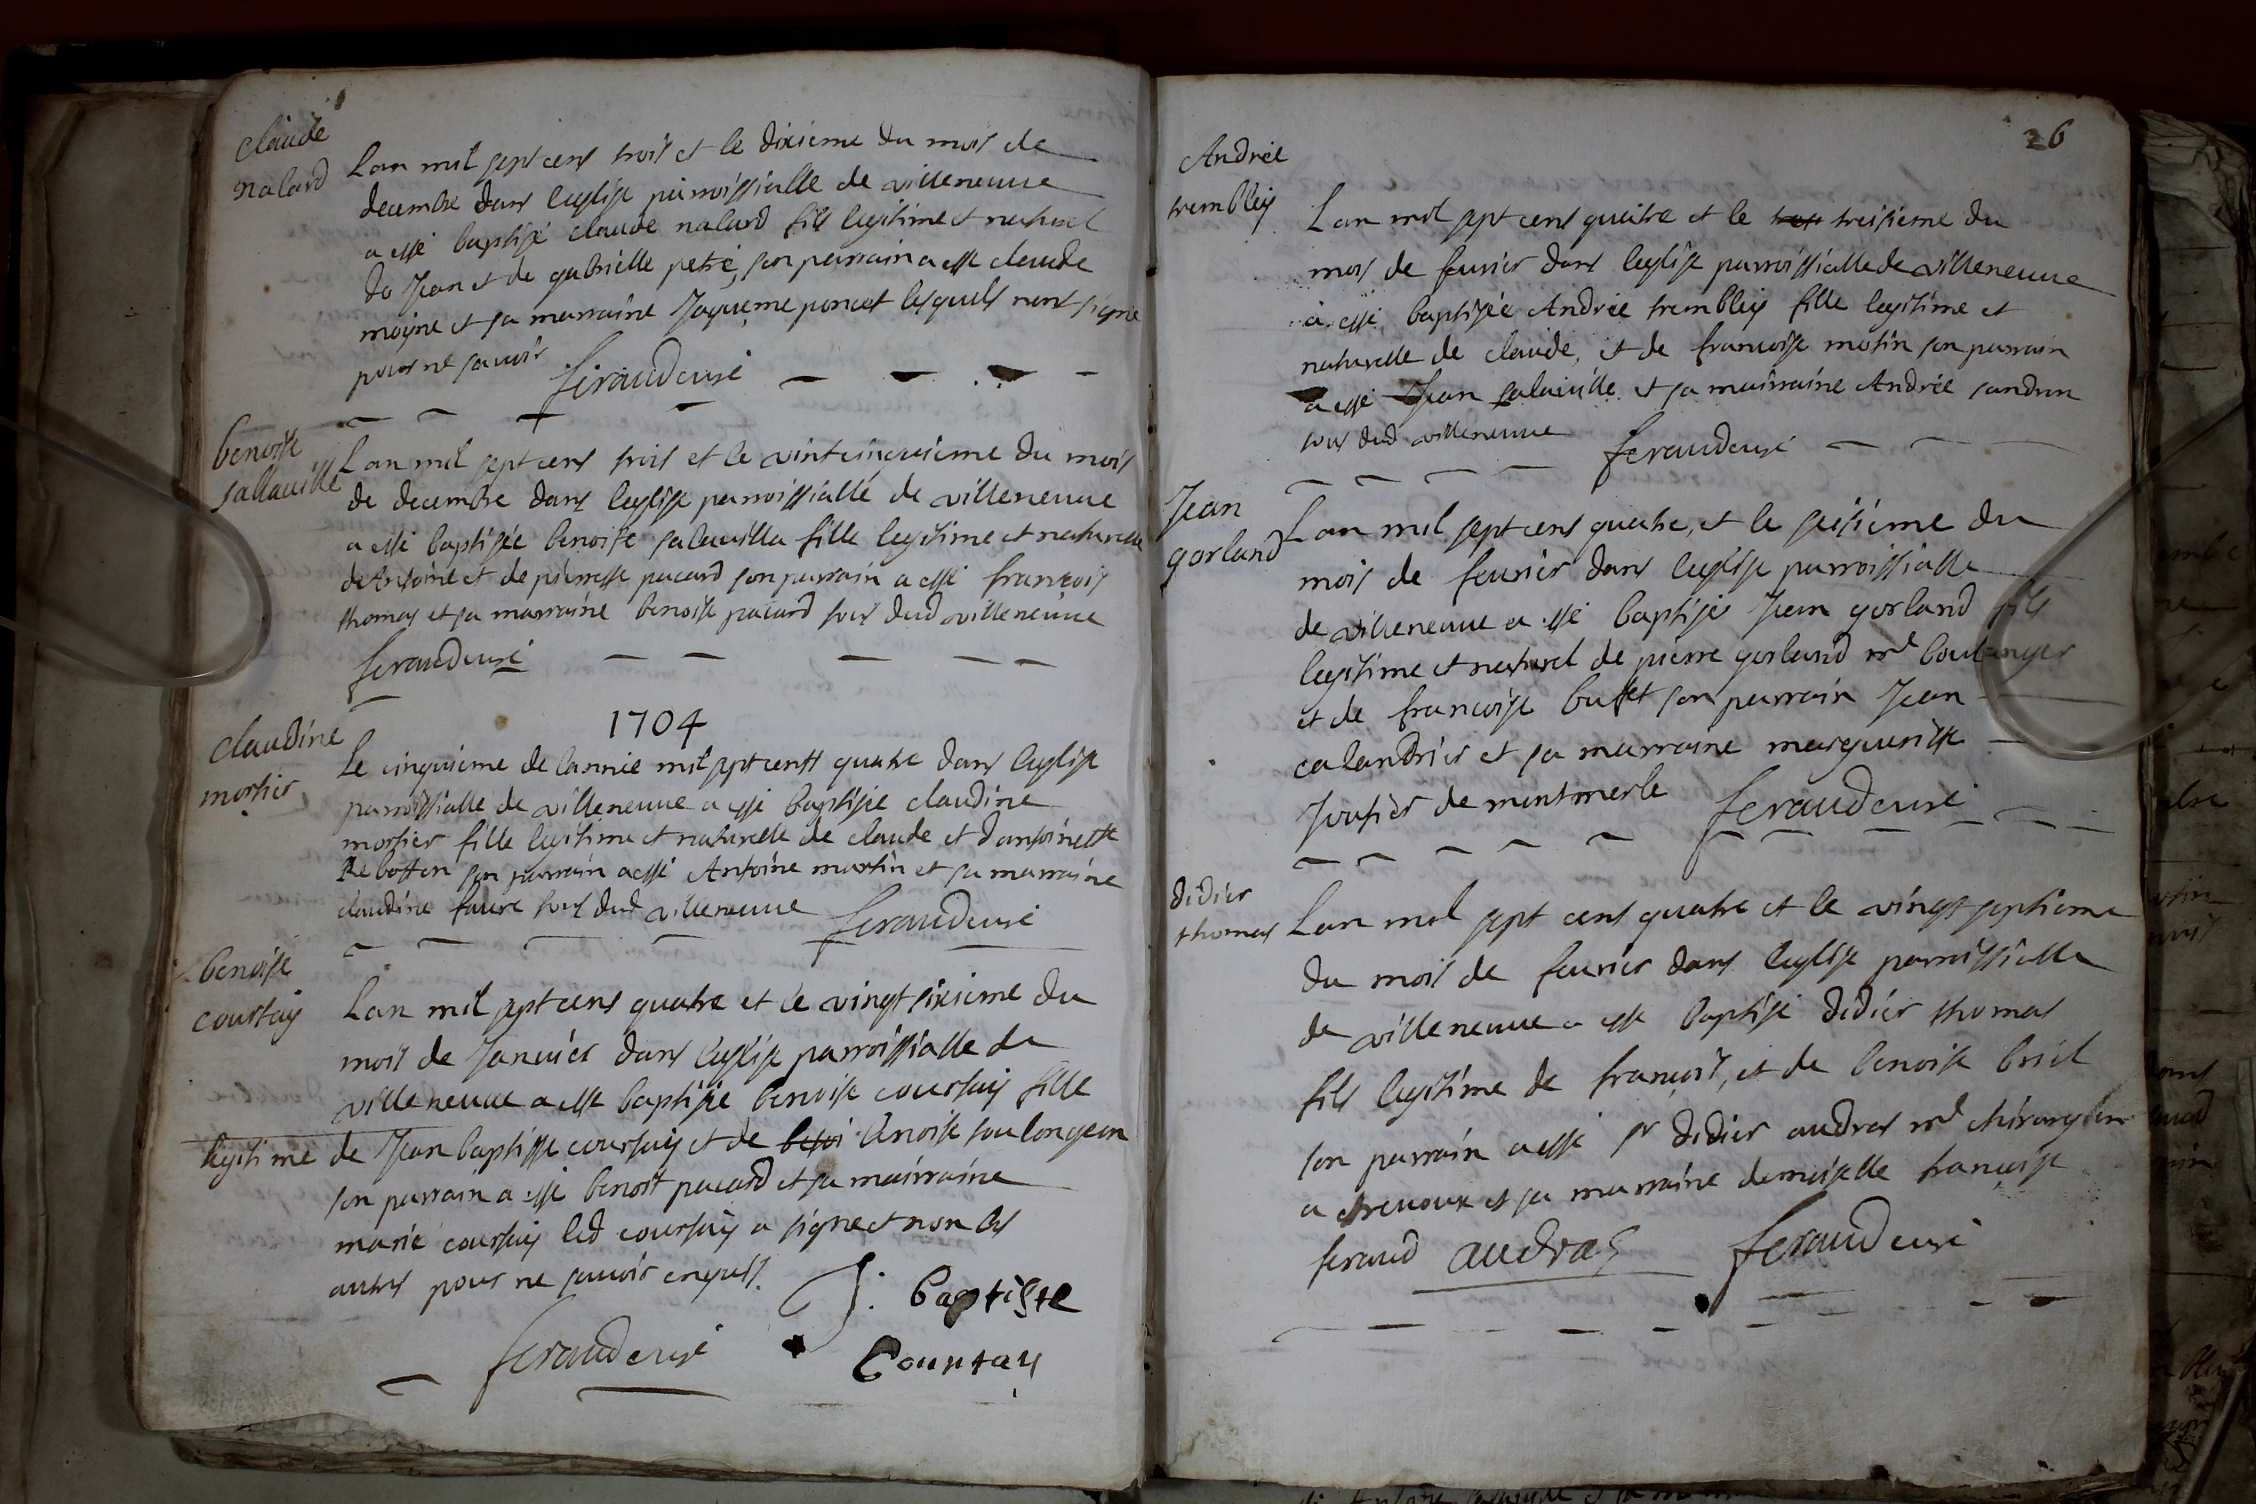 claude
nalard
Lan mil sept cens trois et le dixieme du mois de
decembre dans leglise parroissialle de villeneuve
a esté baptisé claude nalard fils legitime et naturel
de Jean et de gabrielle petré, son parrain a esté claude
moyne et sa marraine Jaqueme poncet lesquels nont signé
pour ne scavoir feraud curé
benoiste
sallaville
Lan mil sept cens trois et le vintcinquieme du mois
de decembre dans leglise parroissialle de villeneuve
a esté baptisée benoiste salavilla fille legitime et naturelle
de Antoine et de pierresse pacard son parrain a esté francois
thomas et sa marraine benoiste pacard tous dud villeneuve
feraud curé
1704
claudine
mortier
Le cinquieme de lannée mil sept cents quatre dans leglise
parroissialle de villeneuve a esté baptisée claudine
mortier fille legitime et naturelle de claude et dantoinette
Rebotton son parrain a esté Antoine martin et sa marraine
claudine favre tous dud villeneuve feraud curé
benoiste
courtay
Lan mil sept cens quatre et le vingt sixieme du
mois de Janvier dans leglise parroissialle de
villeneuve a esté baptisée benoiste courtay fille
legitime de Jean baptisse courtay et de benoiste toulongeon
son parrain a esté benoit pacard et sa mairraine
marie courtay led courtay a signé et non les
autres pour ne scavoir enquis.
J: baptiste
feraud curé
Courtay
26
Andrée
trembley
Lan mil sept cens quatre et le treisieme du
mois de fevrier dans leglise parroissialle de villeneuve
a esté baptisée Andrée trembley fille legitime et
naturelle de claude, et de francoise motin son parrain
a esté Jean salaville et sa mairraine Andrée sandrin
tous dud villeneuve feraud curé
Jean
gorland
Lan mil sept cens quatre, et le seisieme du
mois de fevrier dans leglise parroissialle
de villeneuve a esté baptisé Jean gorland fils
legitime et naturel de pierre gorland md boulanger
et de francoise buffet son parrain Jean
calandrier et sa marraine margueritte
de montmerle feraud curé
didier
thomas
Lan mil sept cens quatre et le vingt septieme
du mois de fevrier dans leglise parroissialle
de villeneuve a esté baptisé didier thomas
fils legitime de francois, et de benoiste briel
son parrain a esté sr didier audras md chirurgien
a trevoux et sa marraine demoiselle francoise
feraud audras feraud curé